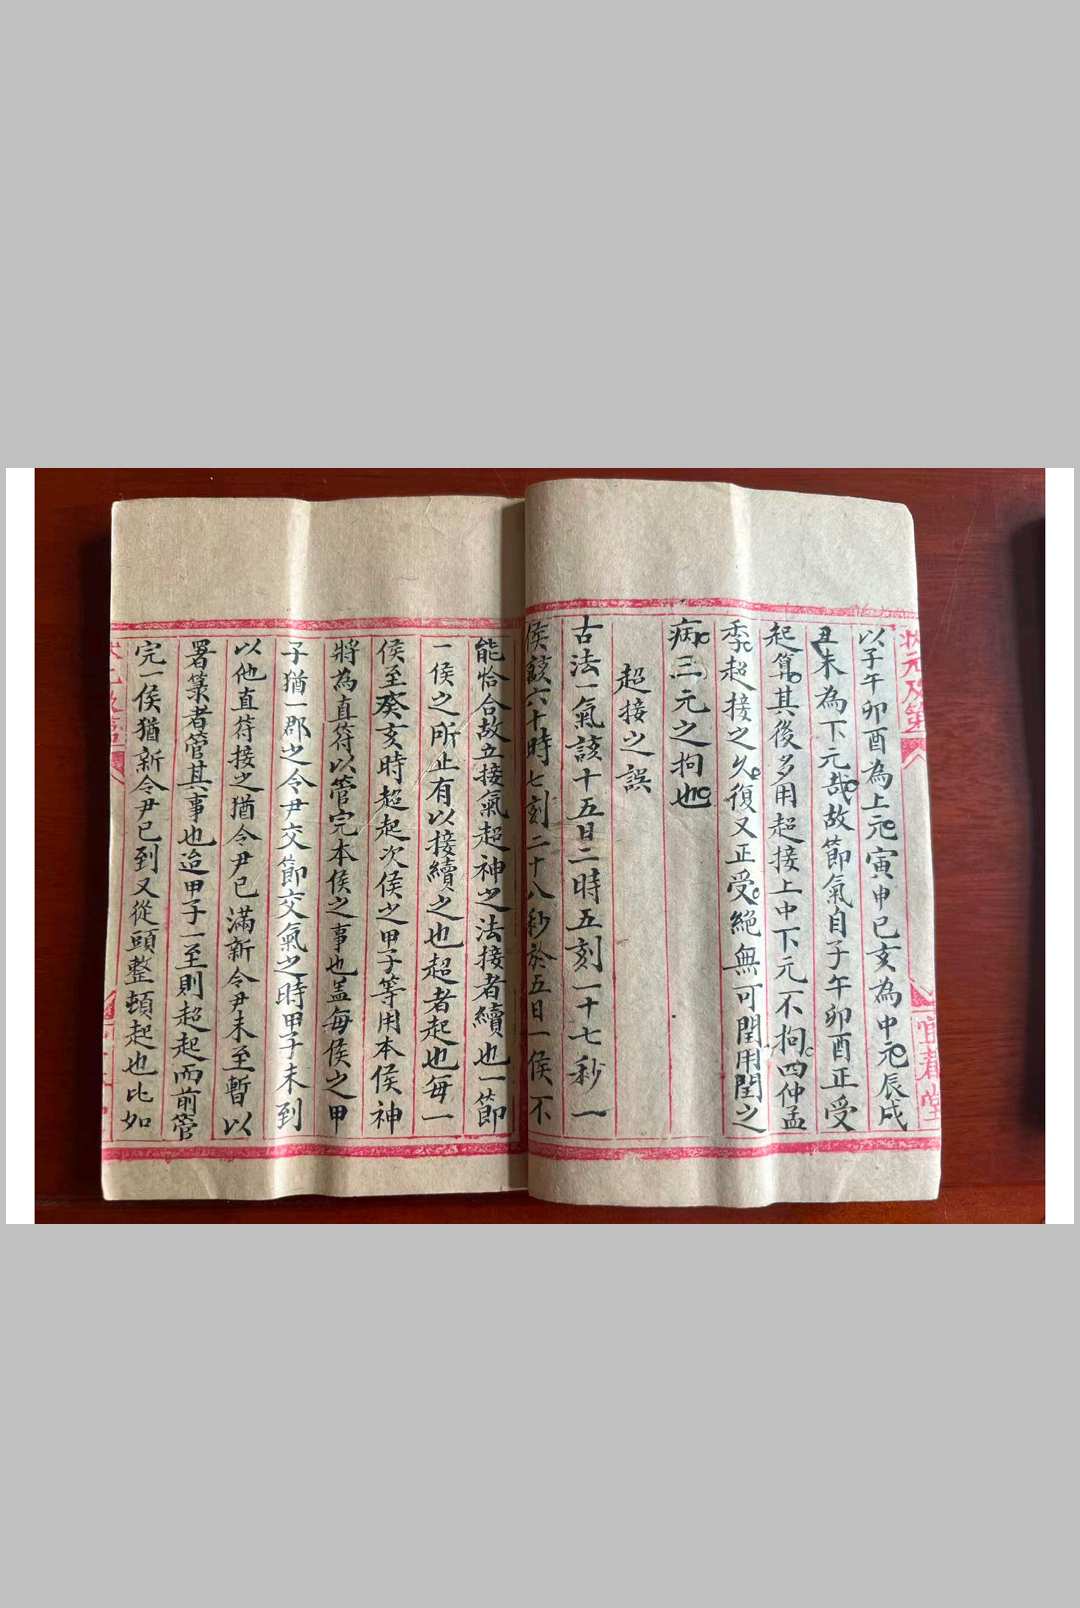 狀元及第
宜春堂
以子午卯酉為上元寅申巳亥為中元辰戌
丑未為下元哉故節氣自子午卯酉正受
起算其後多用超接上中下元不拘四仲孟
季超接之久復又正受絕無可閏用閏之
病三元之拘也
超接之誤
古法一氣該十五日二時五刻一十七秒一
侯該六十時七刻二十八秒於五日一侯不
能恰合故立接氣超神之法接者續也一節
一侯之所止有以接續之也超者起也每一
侯至癸亥時超起次侯之甲子等用本侯神
將為直符以管完本侯之事也盖每侯之甲
子猶一郡之令尹交節交氣之時甲子未到
以他直符接之猶令尹已滿新令尹未至暫以
署篆者管其事也迨甲子一至則超起而前管
完一侯猶新令尹已到又從頭整頓起也比如